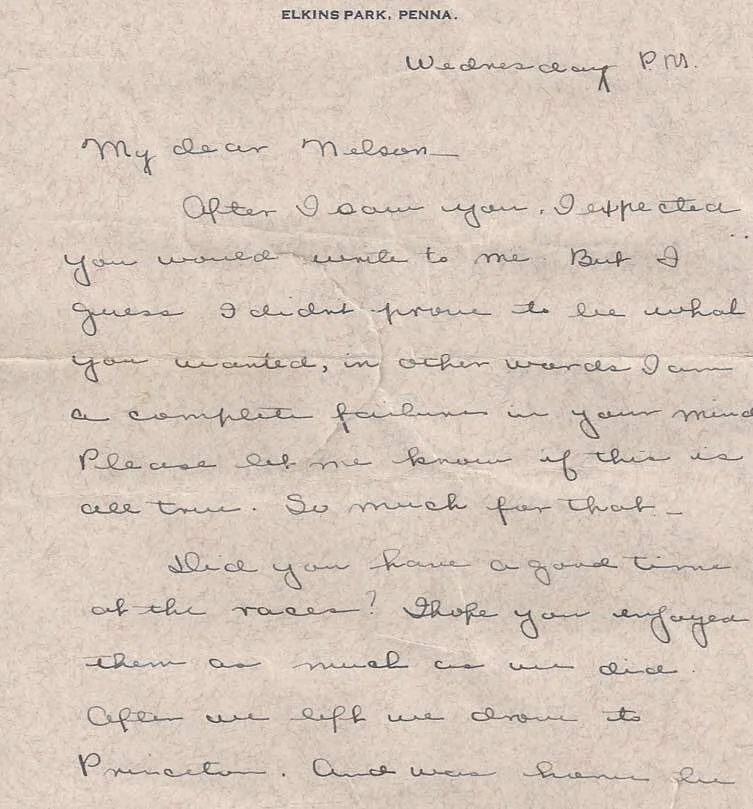 ELKINS PARK, PENNA.
Wednesday P.M.
My dear Nelson—
After I saw you, I expected
you would write to me. But I
guess I didnt prove to be what
you wanted, in other words I am
a complete failure in your mind
Please let me know if this is
all true. So much for that—
Did you have a good time
at the races? I hope you enjoyed
them as much as we did.
After we left we drove to
Princeton. And was home by